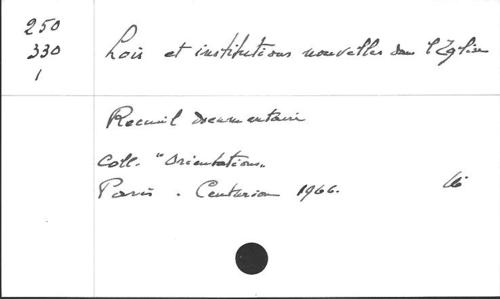 250
330
1
Lois et institutions nouvelles dans l'Eglise
Recueil documentaire
Coll. "Orientations"
Paris. Centurion 1966.